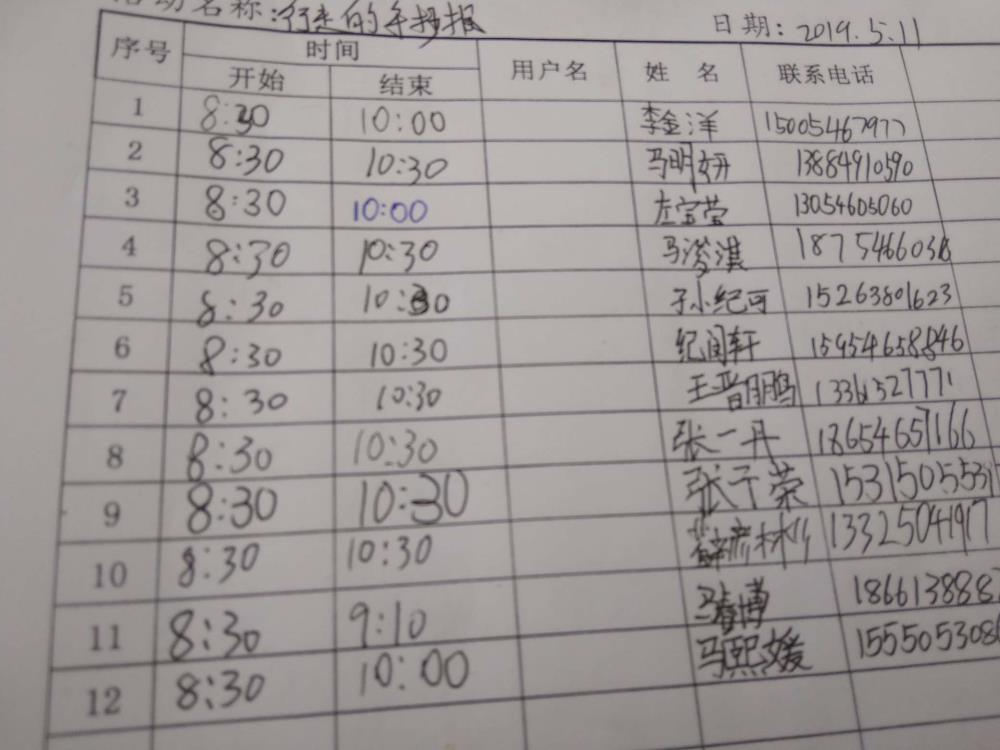 活动名称:行走的手抄报 日期: 2019.5.11
序号 时间 用户名 姓 名 联系电话
开始 结束
1 8:30 10:00 李金洋 15005467977
2 8:30 10:30 马明妍 13884910590
3 8:30 10:00 左宝莹 13054605060
4 8:30 10:30 马浚淇
5 8:30 10:30 孙纪可 15263801623
6 8:30 10:30 纪润轩
7 8:30 10:30 王晋鹏 13361527771
8 8:30 10:30 张一丹 18654657166
9 8:30 10:30 张子荣
10 8:30 10:30 13325041917
11 8:30 9:10 马春博
12 8:30 10:00 马熙媛